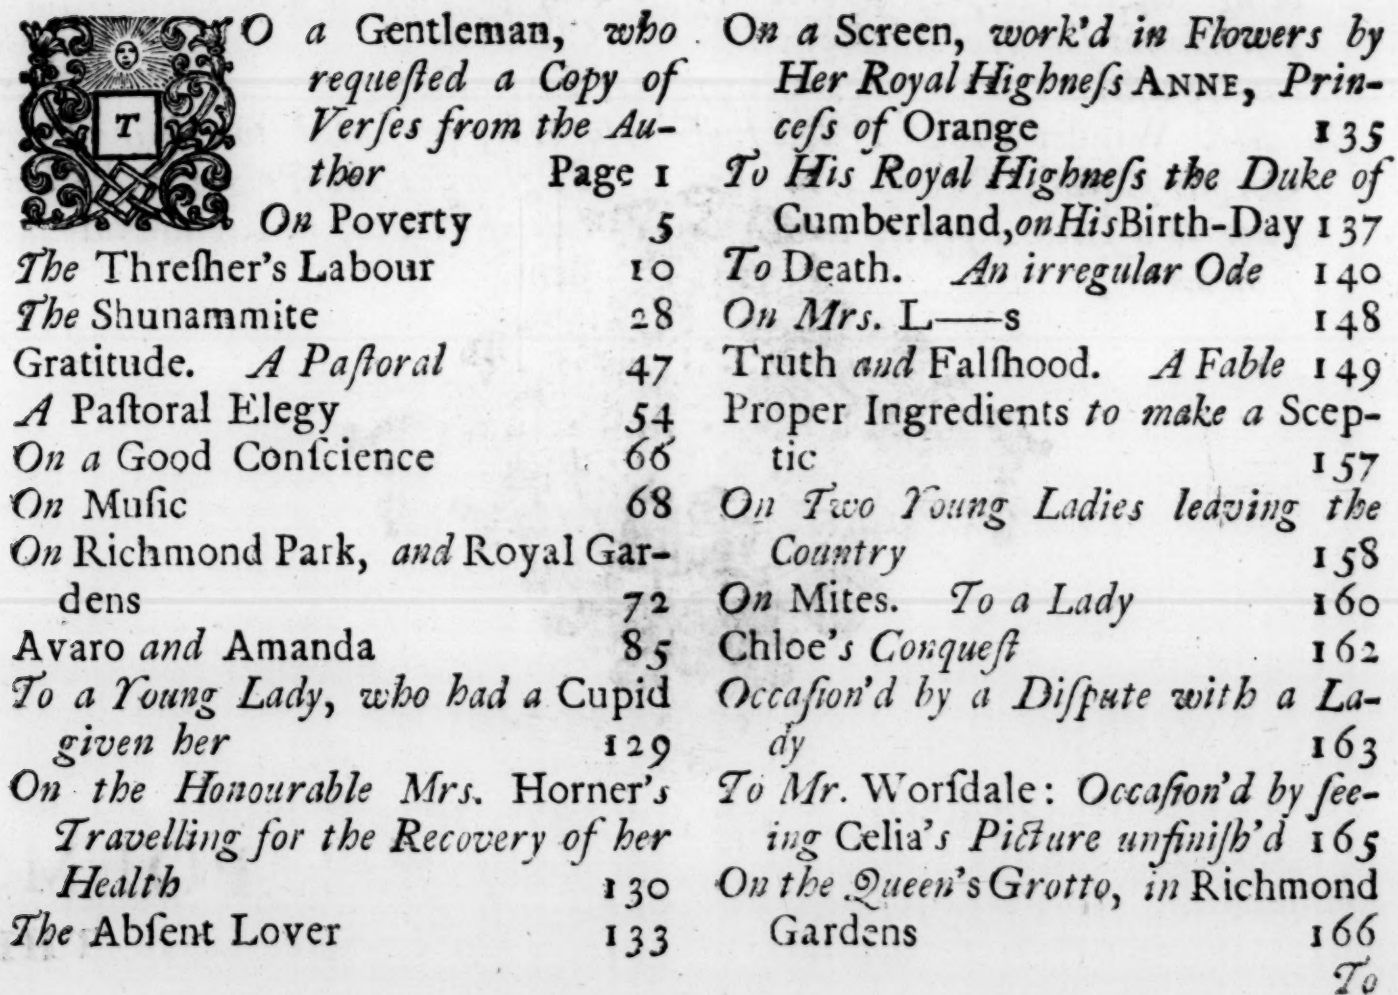 TO a Gentleman, who
requeſted a Copy of
Verſes from the Au-
thor Page 1
On Poverty 5
The Threſher's Labour 10
The Shunammite 28
Gratitude. A Paſtoral 47
A Paſtoral Elegy 54
On a Good Conſcience 66
On Muſic 68
On Richmond Park, and Royal Gar-
dens 72
Avaro and Amanda 85
To a Young Lady, who had a Cupid
given her 129
On the Honourable Mrs. Horner's
Travelling for the Recovery of her
Health 130
The Abſent Lover 133
On a Screen, work'd in Flowers by
Her Royal Highneſs ANNE, Prin-
ceſs of Orange 135
To His Royal Highneſs the Duke of
Cumberland, on His Birth-Day 137
To Death. An irregular Ode 140
On Mrs. L——s 148
Truth and Falſhood. A Fable 149
Proper Ingredients to make a Scep-
tic 157
On Two Young Ladies leaving the
Country 158
On Mites. To a Lady 160
Chloe's Conqueſt 162
Occaſion'd by a Diſpute with a La-
dy 163
To Mr. Worſdale: Occaſion'd by ſee-
ing Celia's Picture unfiniſh'd 165
On the Queen's Grotto, in Richmond
Gardens 166
To